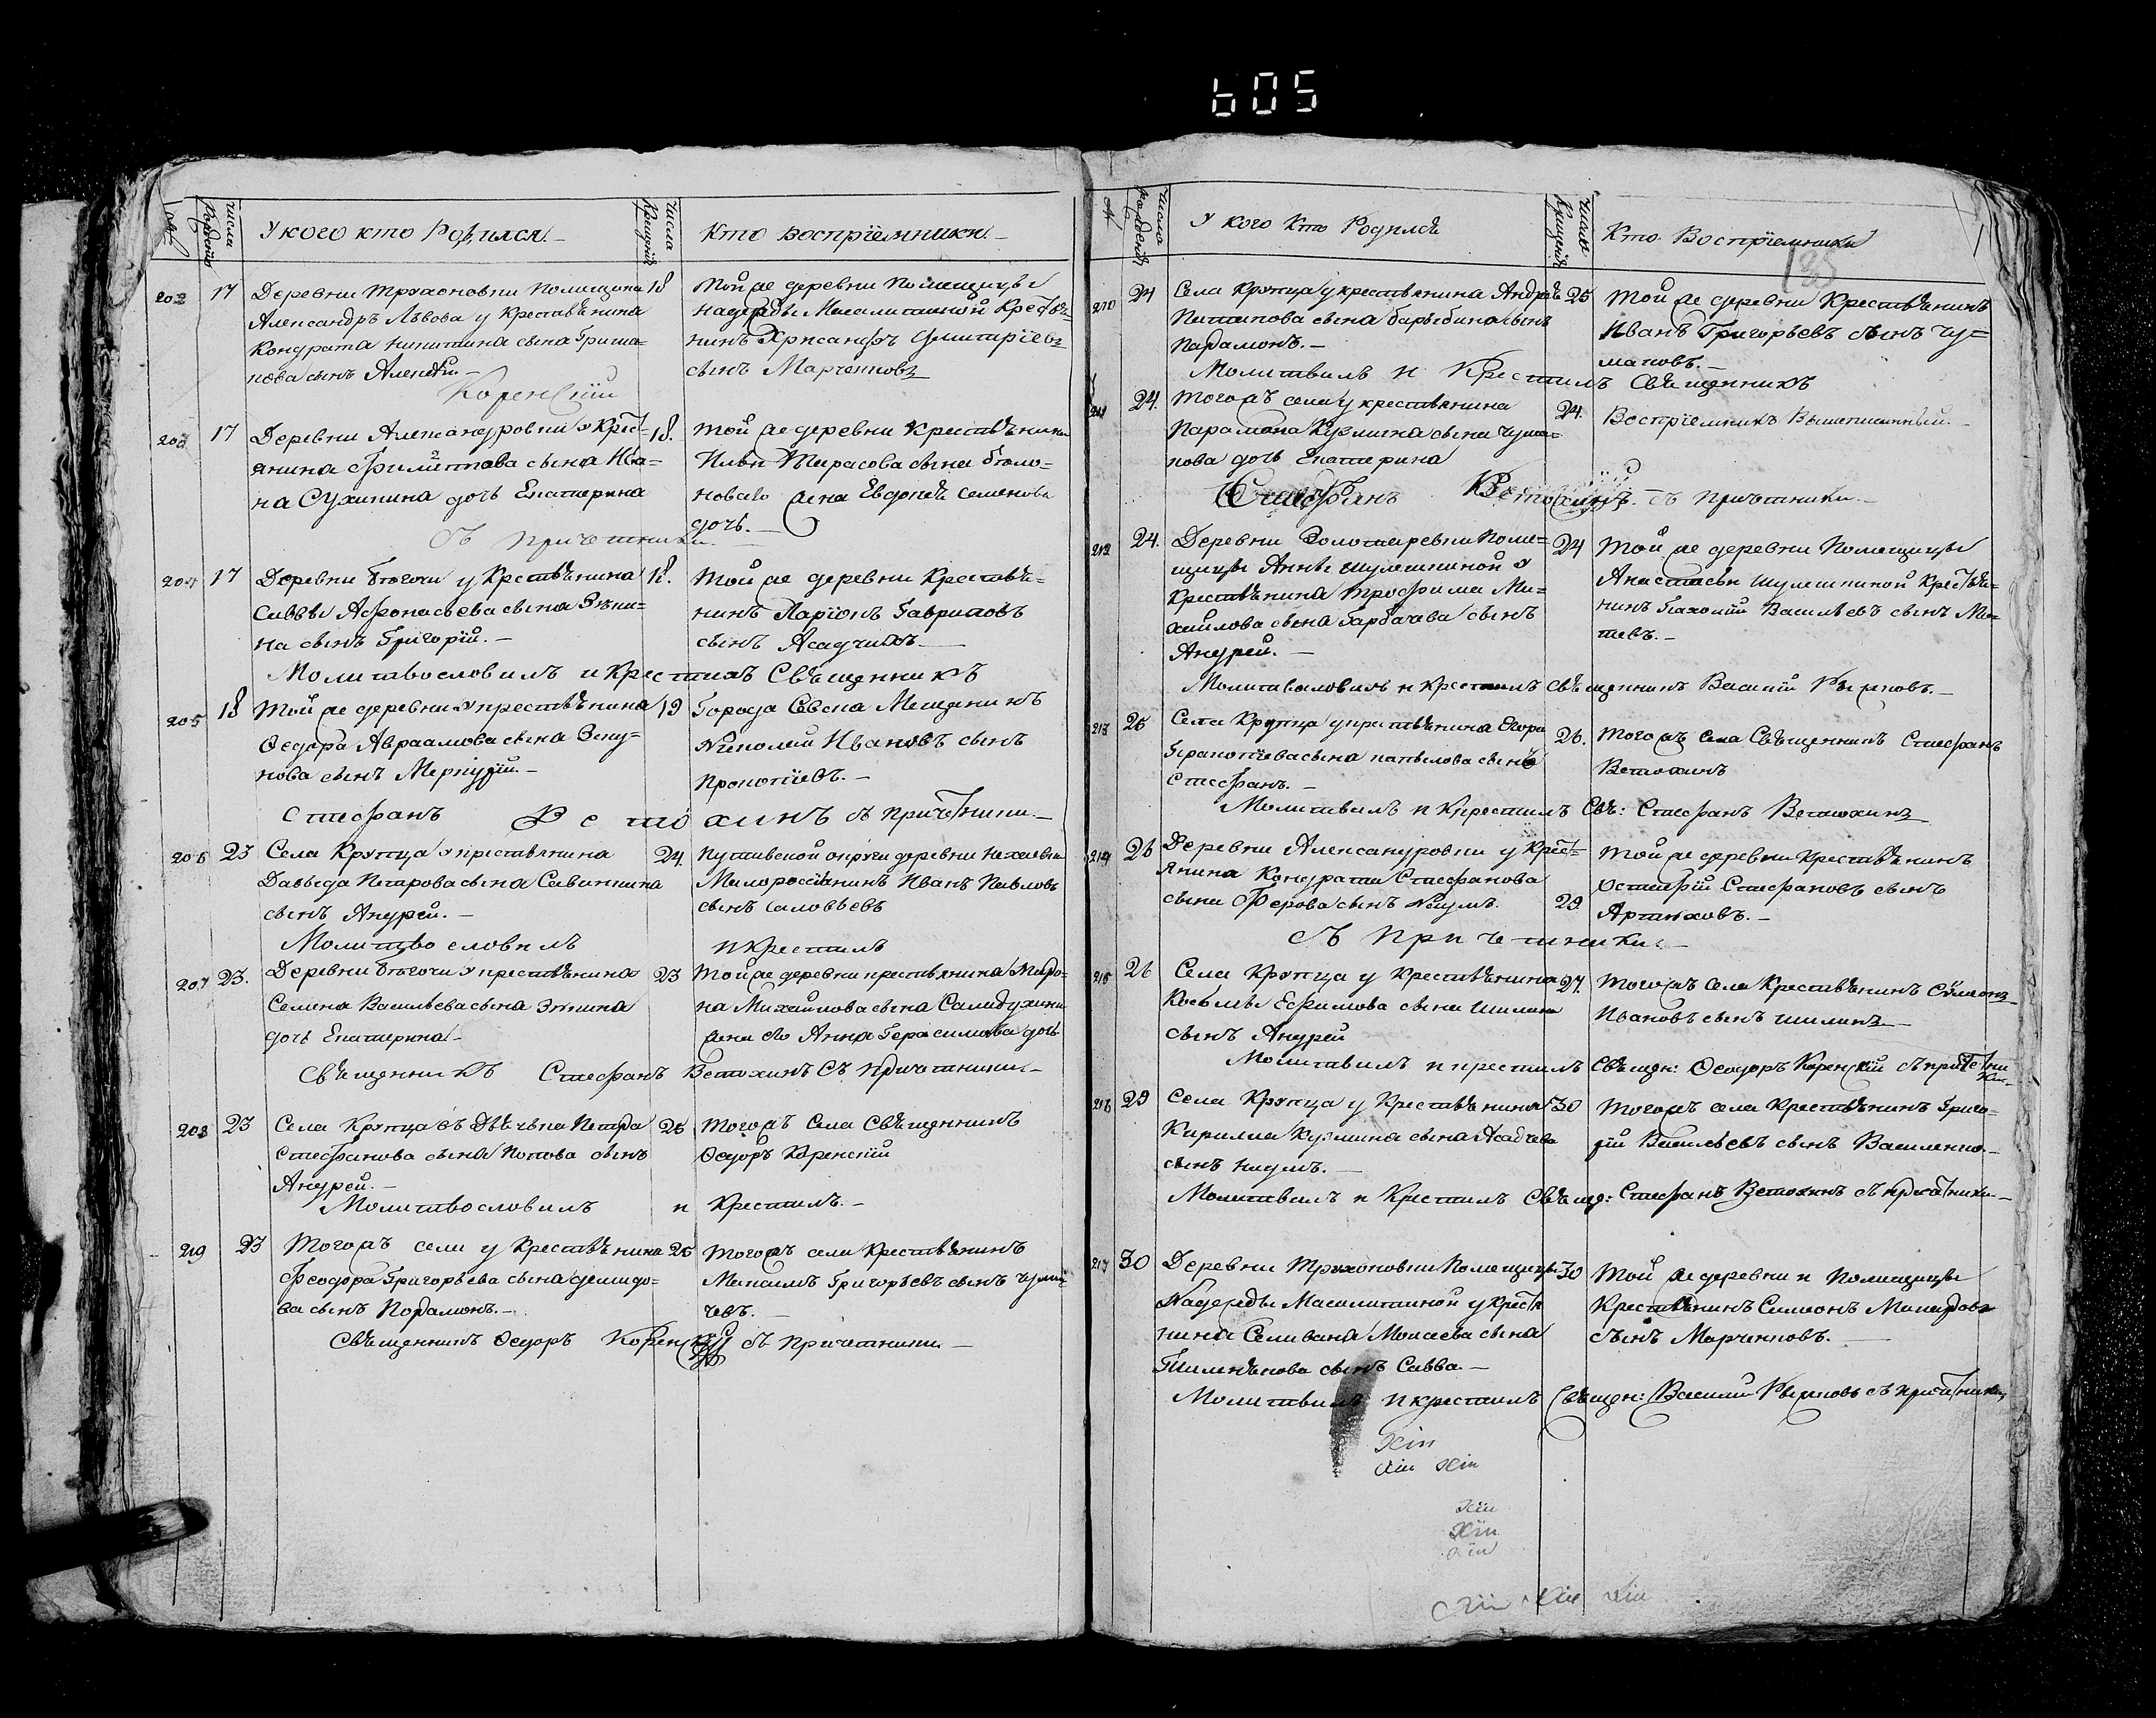 605
числа рождения
У кого кто Родился.
числа крещения
Кто воспрїемники.
202 17 Деревни Трухоновки помещика 18
Александръ Львова у Крестьѣнина
Кондрата Никитина сына
нова сынъ Алексѣй.
Той же деревни Помещицы
Надежды Масалитиной Крестьѣ=
нинъ Хрисанфъ Дмитрїевъ
сынъ Марченковъ
Коренскїй
203 17 Деревни Александровки у Крест= 18.
янина Филиппова сына Ива=
на Сухинина дочь Екатерина
Той же деревни Крестьѣнина
Ильи Тарасова сына
жена Евдокѣя Семенова
дочь.
съ причетники
204 17 Деревни у Крестьѣнина 18.
Саввы Афонасьева сына
на сынъ Григорїй.
Той же деревни Крестьѣ=
нинъ Ларїонъ Гавриловъ
сынъ Асадчихъ.
Молитвословилъ и Крестилъ Свѣщенникъ
205 18 Той же деревни у крестьѣнина 19
Федора Авраамова сына
нова сынъ Меркурїй.
Города Севска Мещенинъ
Николай Ивановъ сынъ
Прокопїевъ.
Стефанъ Ветохинъ съ причетники.
206 23 Села Крупца у крестьянина 24.
Давыда Петрова сына Савинкина
сынъ Андрей.
Путивской округи деревни
Малороссїянинъ Иванъ Павловъ
сынъ Саловьевъ
Молитвословилъ и Крестилъ
207 23. Деревни у крестьѣнина 23
Семена Васильева сына
дочь Екатерина
Той же деревни крестьянина Миро=
на Михайлова сына
жена его Анна Герасимова дочь.
Свѣщенникъ Стефанъ Ветохинъ Съ причетники
208 23 Села Крупца 25
Стефанова сына Попова сынъ
Андрей.
Тогожъ Села Свѣщенникъ
Федоръ Коренскїй
Молитвословилъ и Крестилъ.
219 23 Тогожъ села у Крестьѣнина 25
Феодора Григорьева сына Демидо=
ва сынъ Парамонъ.
Тогожъ села Крестьѣнинъ
Максимъ Григорьевъ сынъ
Свѣщенникъ Федоръ Коренскїй съ Причетники
№ числа рожденїя
У кого Кто Родился
числа крещенїя
Кто Воспрїемники
185
210 24 Села Крупца у крестьянина Андрѣя 25
сына Барыбина сынъ
Парамонъ.
Той же деревни Крестьѣнинъ
Иванъ Григорьевъ сынъ Чу=
маковъ.
Молитвилъ и Крестилъ Свѣщенникъ
211 24. Тогожъ села у крестьянина 24.
Парамона Кузмина сына Чума=
кова дочь Екатерина
Воспрїемникъ Вышеписанный.
Стефанъ Ветохинъ съ причетники.
212 24. Деревни Поме= 24
щицы Анны Шулешкиной у
Крестьѣнина Трофима Ми=
хайлова сына Гарбачева сынъ
Андрей.
Той же деревни Помещицы
Анастасьи Шулешкиной Крестьѣ=
нинъ Пахомїй Васильевъ сынъ
Молитвословилъ и Крестилъ Свѣщенникъ Василїй
213 25 Села Крупца у крестьѣнина Егора 26.
сына сынъ
Стефанъ.
Тогожъ Села Свѣщенникъ Стефанъ
Ветохинъ
Молитвилъ и Крестилъ Свѣ: Стефанъ Ветохинъ
214 26 Деревни Александровки у Крест=
янина Кондрата Стефанова 29
сына сынъ Наумъ.
Той же деревни Крестьѣнинъ
Стефановъ сынъ
Артюховъ.
Съ причетники.
215 26 Села Крупца у Крестьѣнина 27.
Косьмы Ефимова сына Шилина
сынъ Андрей
Тогожъ села Крестьѣнинъ
Ивановъ сынъ Шилинъ.
Молитвилъ и крестилъ Свѣщен: Феодоръ Коренскїй съ причетники
216 29 Села Крупца у Крестьѣнина 30
Кирилла Кузмина сына Асадчева
сынъ Наумъ.
Тогожъ села Крестьѣнинъ Григо=
рїй Васильевъ сынъ Василенко.
Молитвилъ и Крестилъ Свѣщ: Стефанъ Ветохинъ съ причетники
217 30 Деревни Трухоновки Помещицы 30
Надежды Масалитиной у Крестья
нина Селивана Моисеева сына
сынъ Савва.
Той же деревни и Помещицы
Крестьѣнинъ Симеонъ
сынъ Марченковъ.
Молитвилъ и крестилъ Свѣщен: Василїй съ причетники